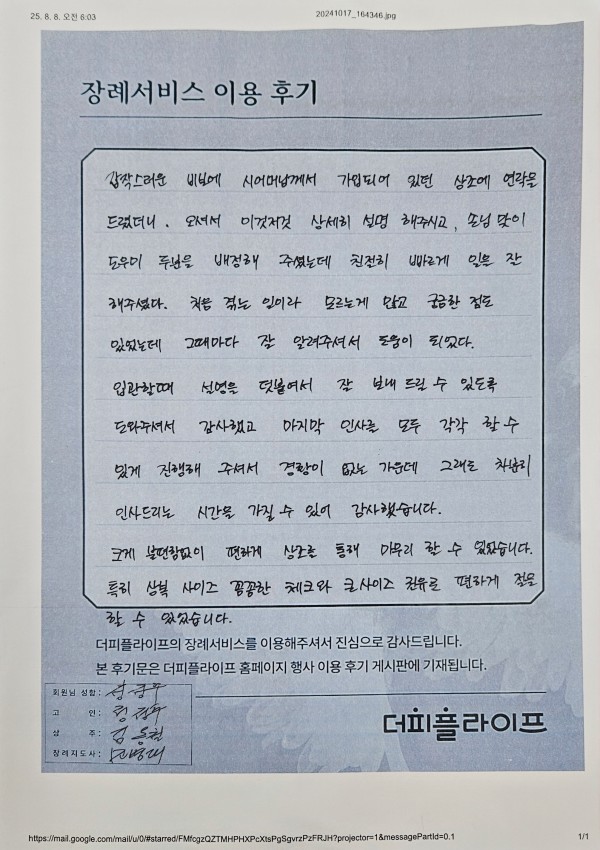 25. 8. 8. 오전 6:03
20241017_164346.jpg
장례서비스 이용 후기
갑작스러운 비보에 시어머님께서 가입되어 있던 상조에 연락을
드렸더니. 오셔서 이것저것 상세히 설명 해주시고, 손님 맞이
도우미 두분을 배정해 주셨는데 친절히 빠르게 일을 잘
해주셨다. 처음 겪는 일이라 모르는게 많고 궁금한 점도
있었는데 그때마다 잘 알려주셔서 도움이 되었다.
입관할때 설명을 덧붙여서 잘 보내 드릴 수 있도록
도와주셔서 감사했고 마지막 인사를 모두 각각 할 수
있게 진행해 주셔서 경황이 없는 가운데 그래도 차분히
인사드리는 시간을 가질 수 있어 감사했습니다.
크게 불편함없이 편하게 상조를 통해 마무리 할 수 있었습니다.
특히 상복 사이즈 꼼꼼한 체크와 큰사이즈 권유로 편하게 일을
할 수 있었습니다.
더피플라이프의 장례서비스를 이용해주셔서 진심으로 감사드립니다.
본 후기문은 더피플라이프 홈페이지 행사 이용 후기 게시판에 기재됩니다.
회원님 성함 :
고 인 :
상 주 :
장례지도사 :
더피플라이프
https://mail.google.com/mail/u/0/#starred/FMfcgzQZTMHPHXPcXtsPgSgvrzPzFRJH?projector=1&messagePartId=0.1
1/1